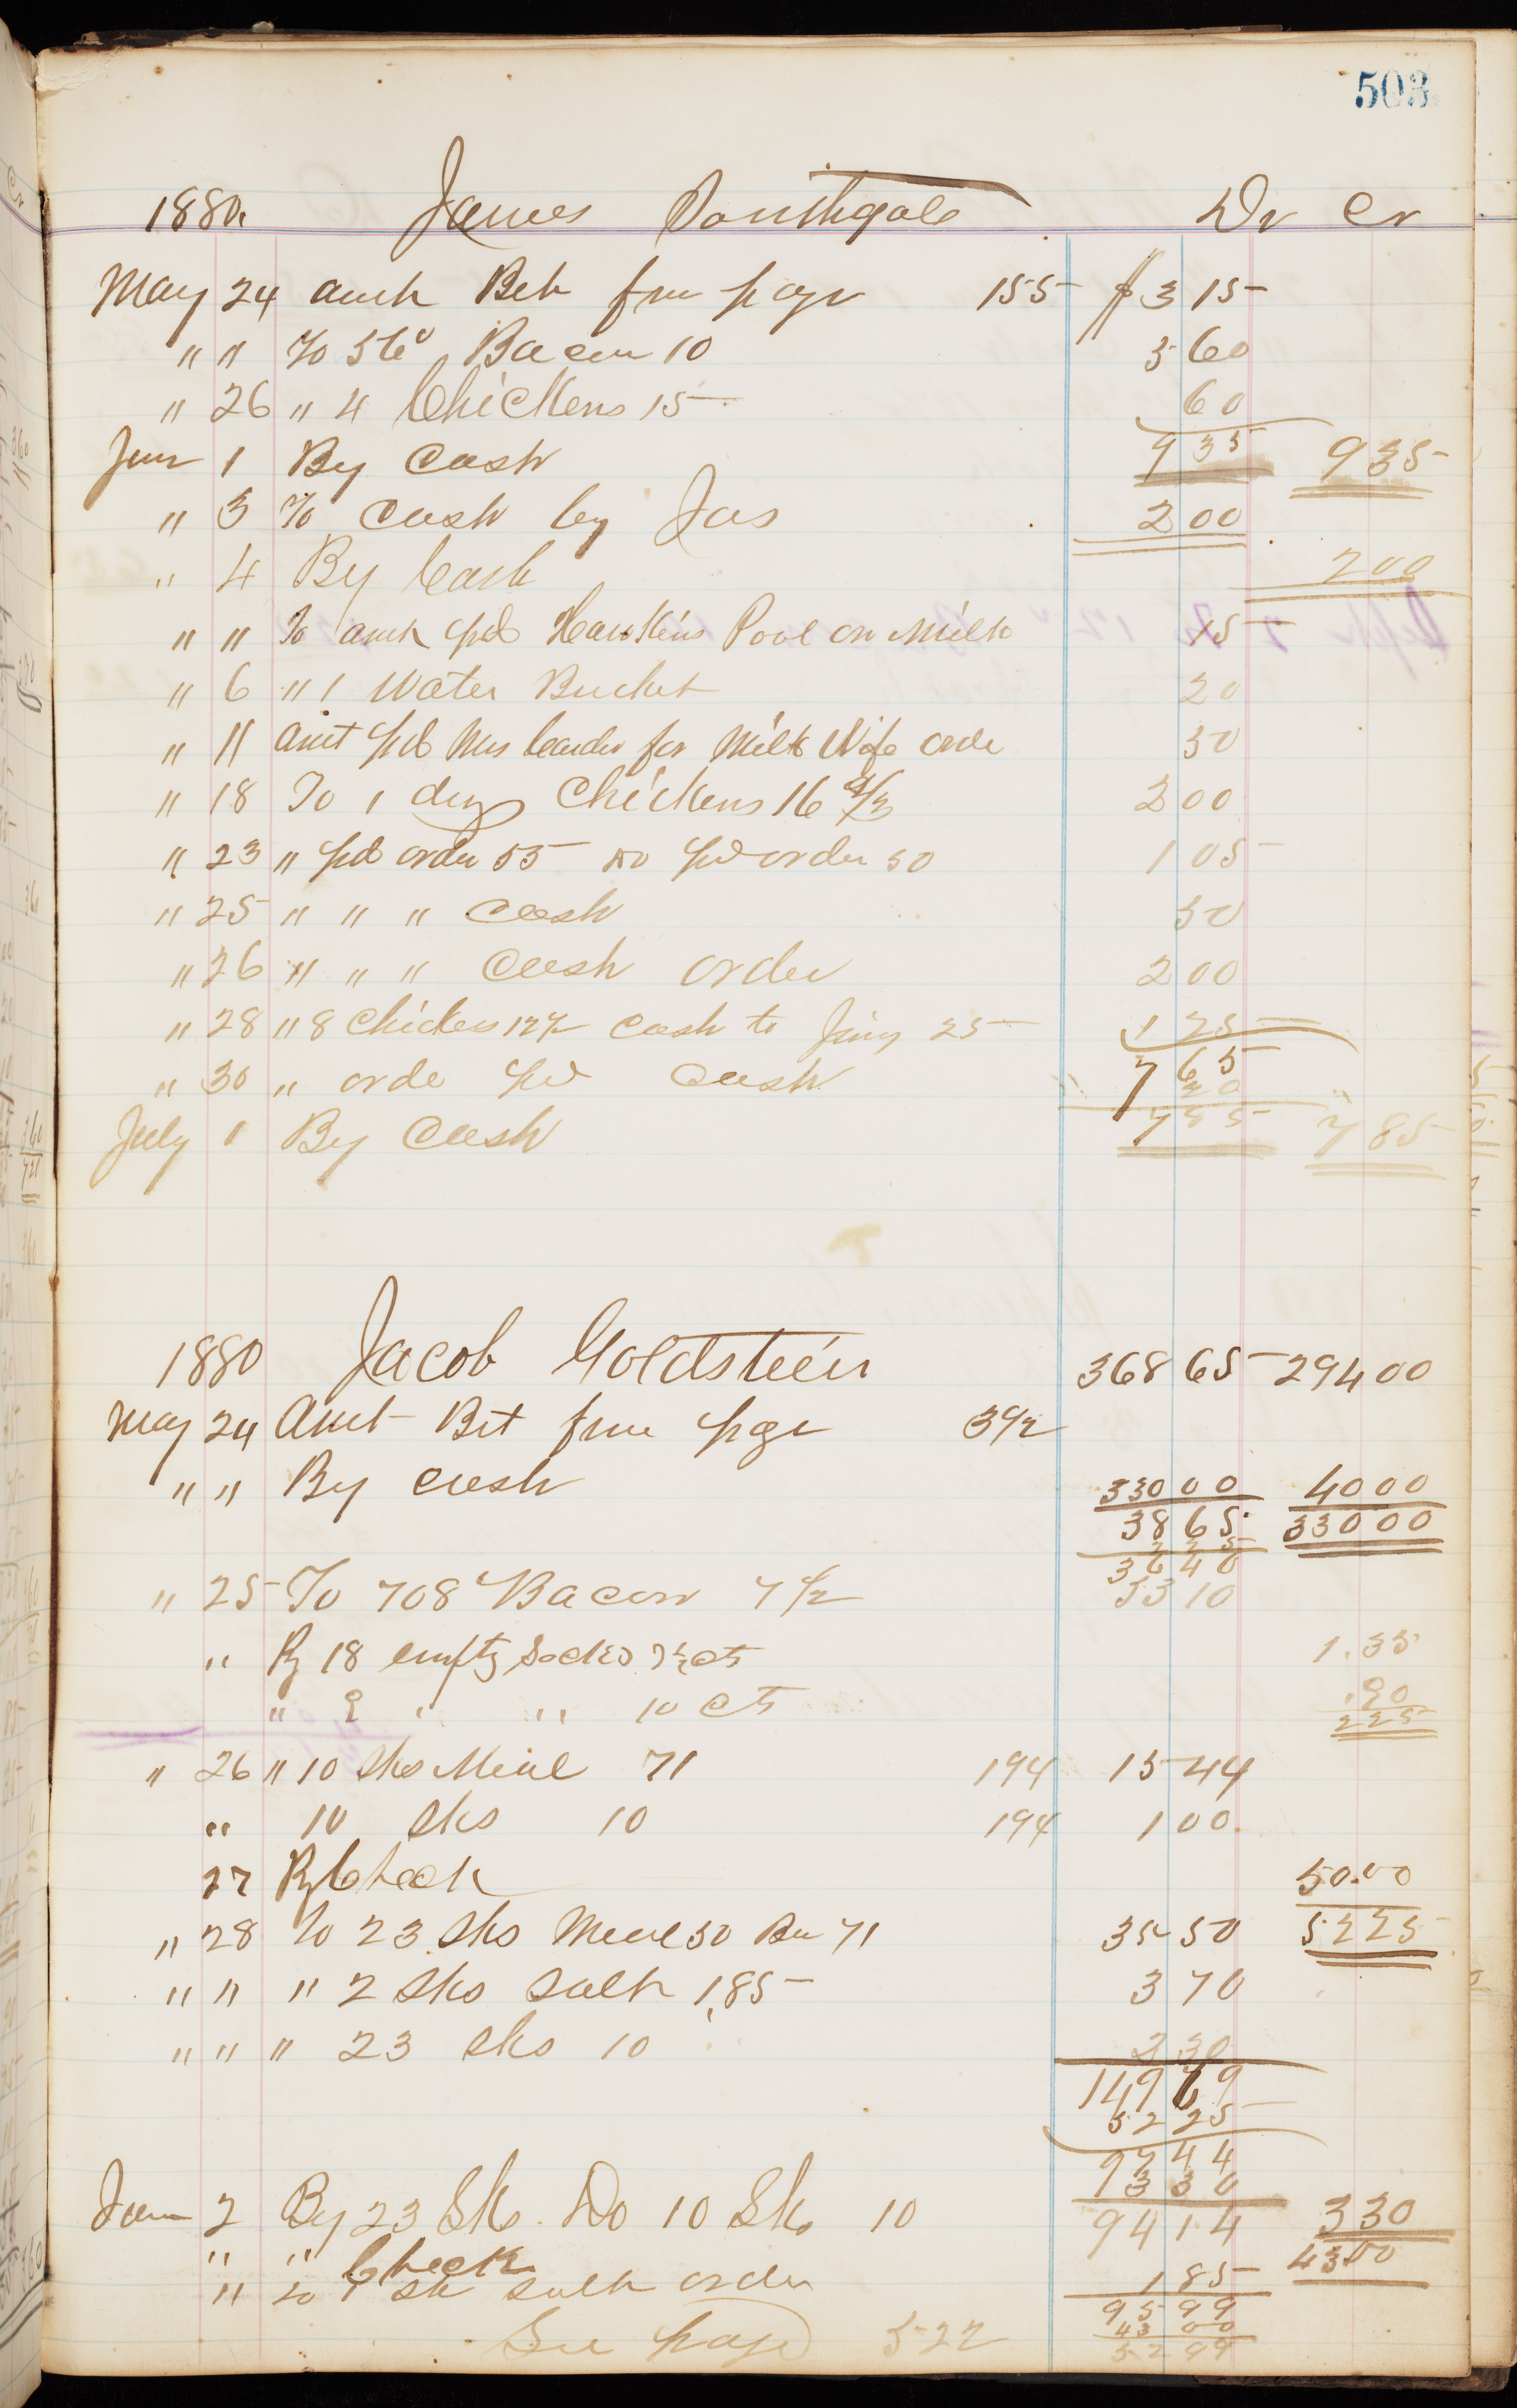 503
1880. James Southgate Dr Cr
May 24 amt Bct from page 155 $ 3 15
" " To 36# Bacon 10 3 60
" 26 " 4 Chickens 15 60
June 1 By Cash 9 35 9 35
" 3 To Cash by Jas 2 00
" 4 By Cash 2 00
" " To amt pd Hawkins Pool on Milk 15
" 6 " 1 Water Bucket 20
" 11 amt pd Mrs for Milk Wife orde 30
" 18 To 1 doz Chickens 16 2/3 2 00
" 23 " pd order 55 Do pd order 50 1 05
" 25 " " " Cash 50
" 26 " " " Cash order 2 00
" 28 " 8 Chickens 12½ Cash to Jim 25 1 25
7 65
" 30 " orde pd Cash 20
July 1 By Cash 7 85 7 85
1880 Jacob Goldstein 368 65 294 00
May 24 Amt Bct from page 392
" " By Cash 330 00 40 00
38 65 330 00
2 25
36 40
" 25 To 708 Bacon 7½ 53 10
" By 18 empty Sacks 7½ cts 1.35
" 9 " " 10 cts .90
2 25
" 26 " 10 Sks Meal 71 194 15 44
" 10 Sks 10 194 1 00
27 By Check 50.00
" 28 To 23 Sks Meal 50 Bu 71 35 50 52 25
" " " 2 Sks Salt 1,85 3 70
" " " 23 Sks 10 2 30
149 69
52 25
97 44
3 30
June 2 By 23 Sks. Do 10 Sks 10 94 14 3 30
" " Check 43.00
" To 1 Sk Salt order 1 85
95 99
43 00
See page 522 52 99